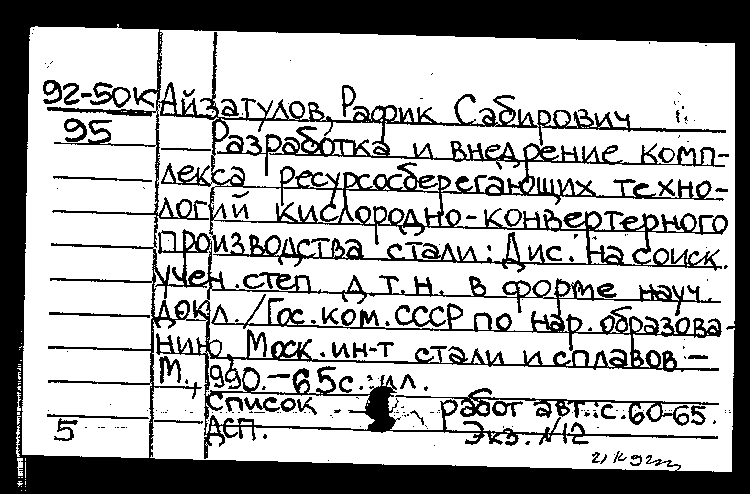 92-50к Айзатулов, Рафик Сабирович
95 Разработка и внедрение комп-
лекса ресурсосберегающих техно-
логий кислородно-конвертерного
производства стали: Дис. на соиск.
учен. степ. д.т.н. в форме науч.
докл. /Гос. ком. СССР по нар. образова-
нию, Моск. ин-т стали и сплавов.-
М., 990.-65с.: ил.
Список работ авт.: с. 60-65.
5 ДСП. Экз. N12